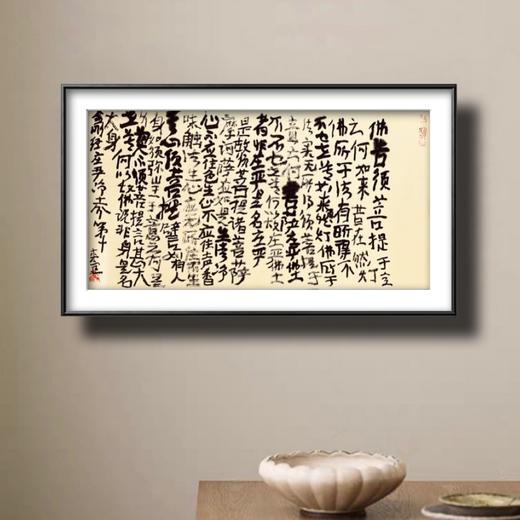 佛告须菩提于意
云何如来昔在然灯
佛所于法有所得不
不也世尊如来然灯佛所于
法实无所得须菩提于
意云何菩萨庄严佛土
不不也世尊何以故庄严佛土
者非庄严是名庄严
是故须菩提诸菩萨
摩诃萨应如是生清净
心不应住色生心不应住声香
味触法生心应无所住而生
其心须菩提譬如有人
身如须弥山王于意云何是
身为大不须菩提言甚大
世尊何以故佛说非身是名
大身
金刚经庄严净土分第十